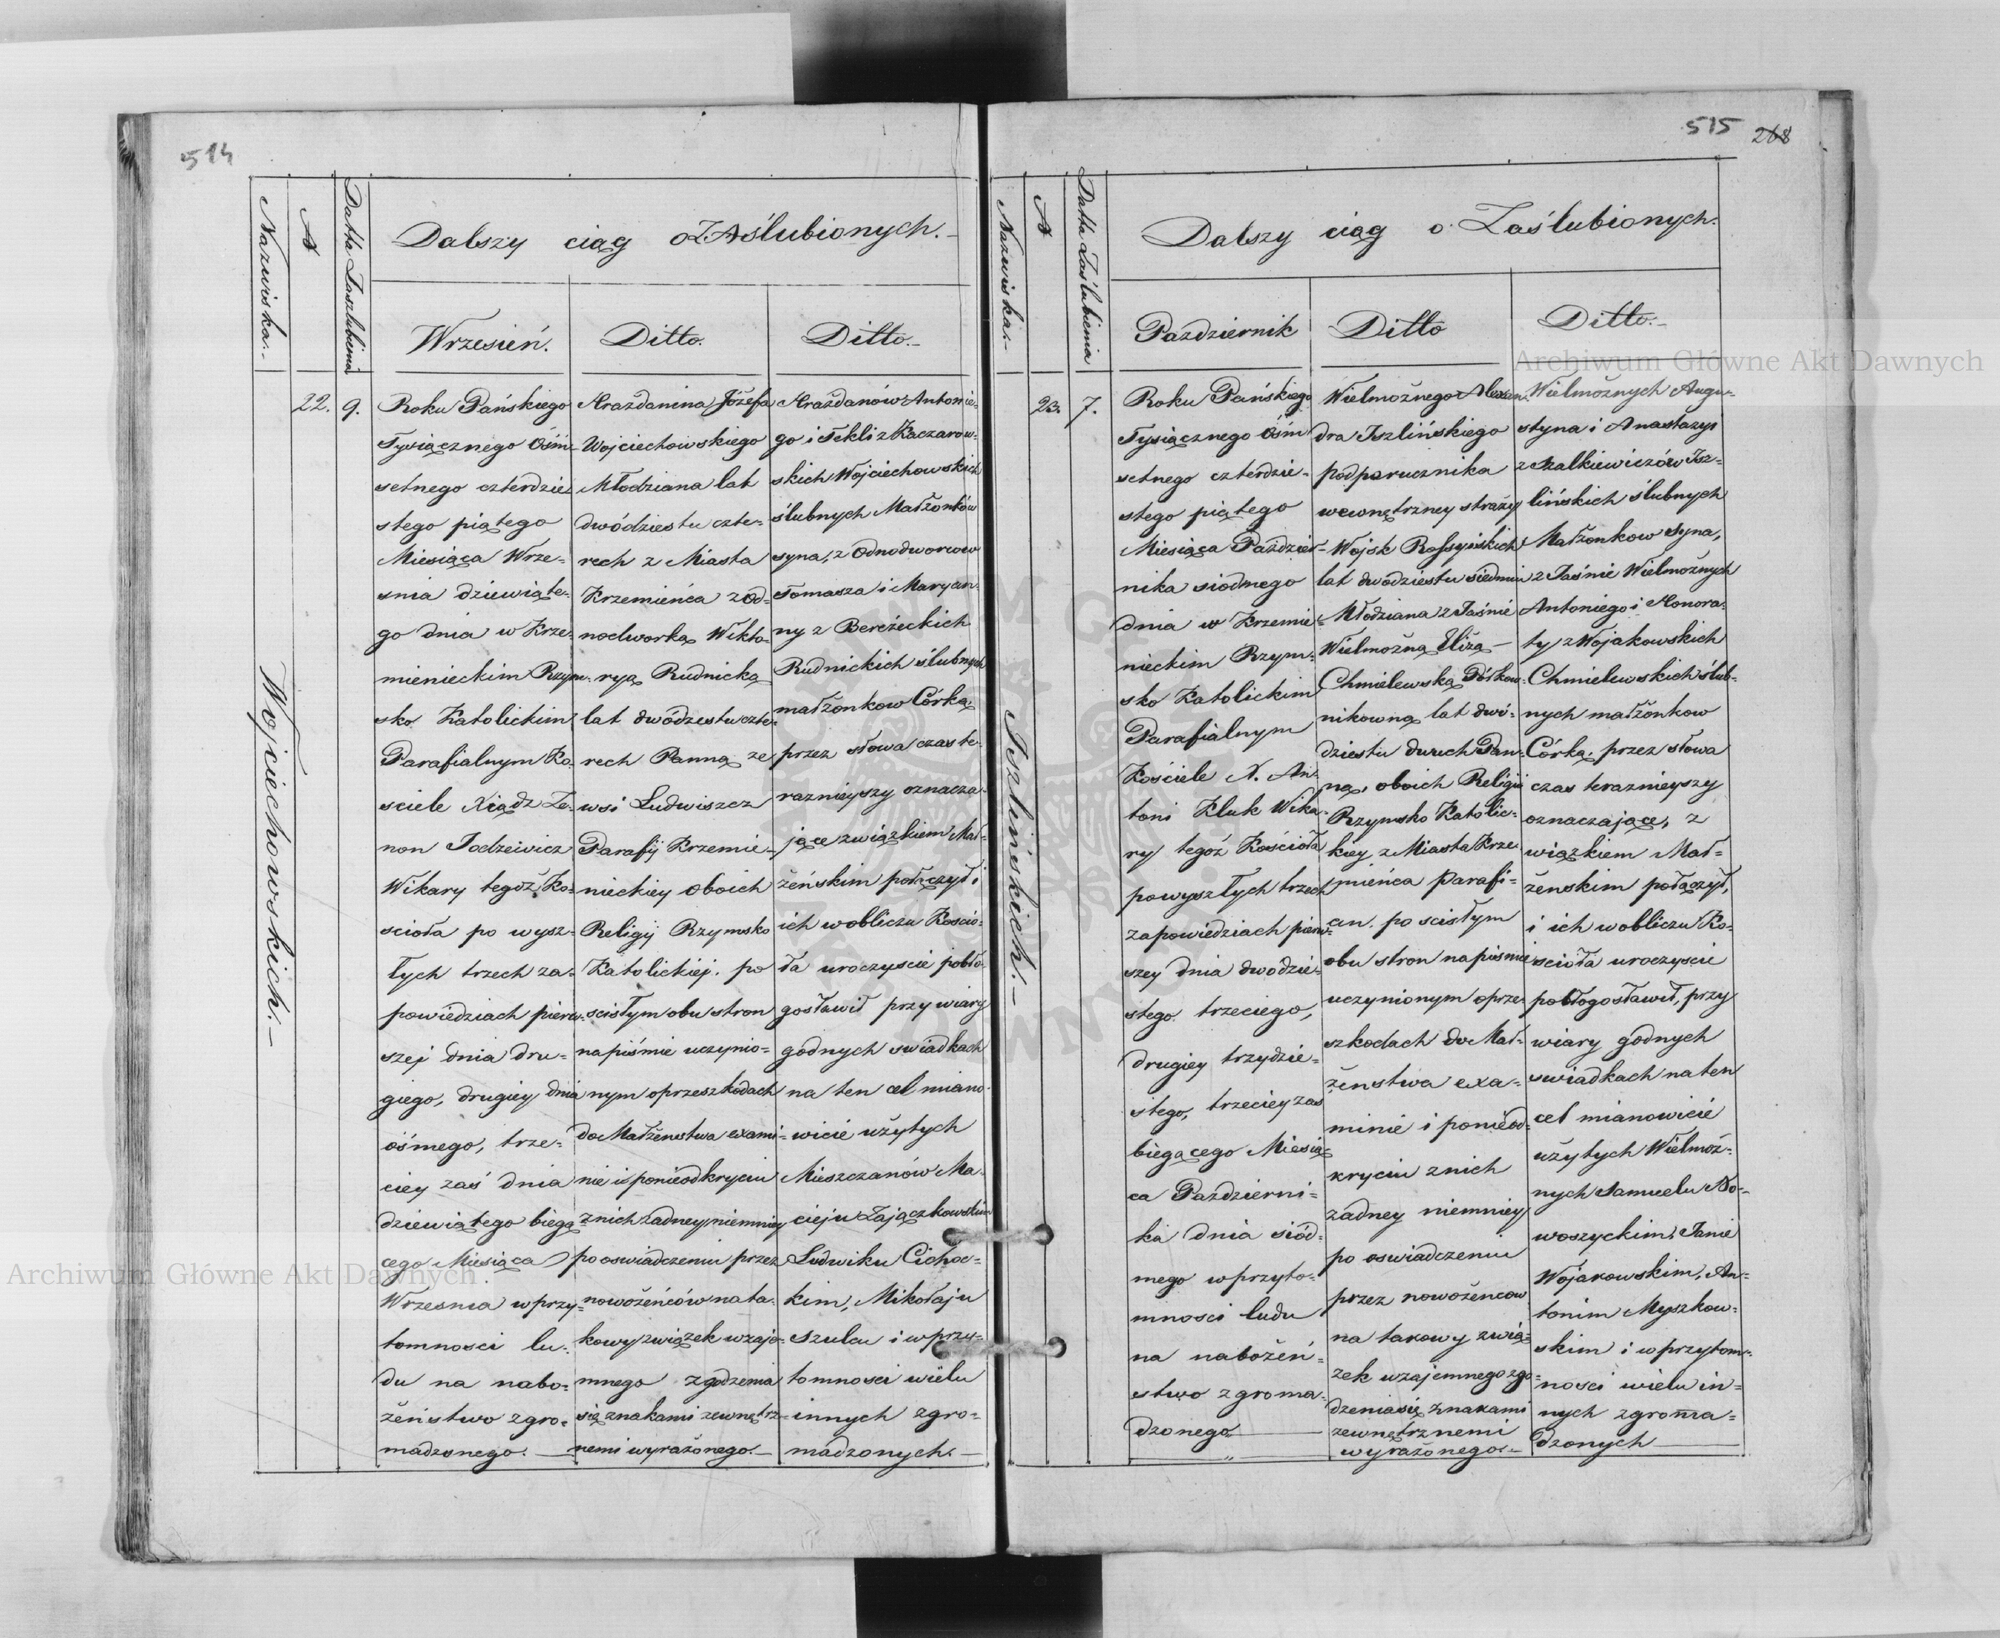 514
Nazwiska.
Datta Zaszlubienia
Dalszy ciąg o ZAślubionych.
Wrzesień.
Ditto.
Ditto.
Wojciechowskich.
22.
9.
Roku Pańskiego
Tysiącznego Ośm-
setnego czterdzie
stego piątego
Miesiąca Wrze-
snia dziewiąte-
go dnia w Krze-
mienieckim Rzym-
sko Katolickim
Parafialnym Ko-
sciele Xiądz Ze-
non Jodzewicz
Wikary tegoż Ko-
scioła po wysz-
łych trzech za-
powiedziach pierw-
szej dnia dru-
giego, drugiey dnia
ósmego, trze-
ciey zaś dnia
dziewiątego biegą
cego Miesiąca
Wrzesnia w przy-
tomnosci lu-
du na nabo-
żeństwo zgro-
madzonego.
Hrażdanina Józefa
Wojciechowskiego
Młodziana lat
dwódziestu czte-
rech z Miasta
Krzemieńca z Od-
nodworką Wikto-
ryą Rudnicką
lat dwódziestu czte-
rech Panną ze
wsi Ludwiszcz
Parafij Krzemie-
nieckiey oboich
Religij Rzymsko
Katolickiej. po
scisłym obu stron
na piśmie uczynio-
nym o przeszkodach
do Małżenstwa exami-
nie i poniéodkryciu
z nich żadney, niemniey
po oswiadczeniu przez
nowożeńców na ta-
kowy związek wzaje-
mnego zgodzenia
się znakami zewnętrz-
nemi wyrażonego.
Hrażdanów Antonie-
go i Tekli z Kaczarow-
skich Wojciechowskich
ślubnych Małżonków
syna, z Odnodworców
Tomasza i Maryan-
ny z Bereżeckich
Rudnickich ślubnych
małżonkow Córką
przez słowa czas te-
razniejszy oznacza-
jące związkiem Mał-
żeńskim połączył i
ich w obliczu Kościo-
ła uroczyscie pobło-
gosławił przy wiary
godnych swiadkach
na ten cel miano-
wicie użytych
Mieszczanów Ma-
cieju Zajączkowskim
Ludwiku Cichoc-
kim, Mikołaju
Szulcu i w przy-
tomnosci wielu
innych zgro-
madzonych.
515
268
Nazwiska.
Datta Zaślubienia
Dalszy ciąg o Zaślubionych.
Pazdziernik
Ditto
Ditto.
Iszlińskich.
23.
7.
Roku Pańskiego
Tysiącznego Ośm
setnego czterdzie-
stego piątego
Miesiąca Pazdzier-
nika siódmego
dnia w Krzemie-
nieckim Rzym-
sko Katolickim
Parafialnym
Kościele X. An-
toni Kluk Wika-
ry tegoż Kościoła
powyszłych trzech
zapowiedziach pierw-
szey dnia dwodzie-
stego trzeciego,
drugiey trzydzie-
stego, trzeciey zaś
biegącego Miesią-
ca Pazdzierni-
ka dnia siód-
mego w przyto-
mnosci ludu
na nabożeń-
stwo zgroma-
dzonego
Wielmożnego Alexan-
dra Iszlińskiego
podporucznika
wewnętrzney straży
Wojsk Rossyiskich
lat dwódziestu siedmiu
Młodziana z Jaśnie
Wielmożną Elizą
Chmielewską Półkow-
nikowną lat dwó-
dziestu dwuch Pan-
ną, oboich Religii
Rzymsko Katolic-
kiey z Miasta Krze-
mieńca Parafi-
an. po scisłym
obu stron na piśmie
uczynionym o prze-
szkodach do Mał-
żenstwa exa-
minie i poniéod-
kryciu z nich
żadney niemniey
po oswiadczeniu
przez nowożencow
na takowy zwią-
zek wzajemnego zgo-
dzenia się znakami
zewnętrznemi
wyrażonego.
Wielmożnych Augu-
styna i Anastazyi
z Szalkiewiczów Isz-
lińskich ślubnych
Małżonkow syna,
z Jaśnie Wielmożnych
Antoniego i Honora-
ty z Wojakowskich
Chmielewskich ślub-
nych małżonkow
Córką, przez słowa
czas terazniejszy
oznaczające, z
wiązkiem Mał-
żenskim połączył,
i ich w obliczu Ko-
scioła uroczyscie
pobłogosławił, przy
wiary godnych
swiadkach na ten
cel mianowicie
użytych Wielmoż-
nych Samuelu No-
woszyckim, Janie
Wojakowskim, An-
tonim Myszkow-
skim i w przytom-
nosci wielu in-
nych zgroma-
dzonych
Archiwum Główne Akt Dawnych
Archiwum Główne Akt Dawnych